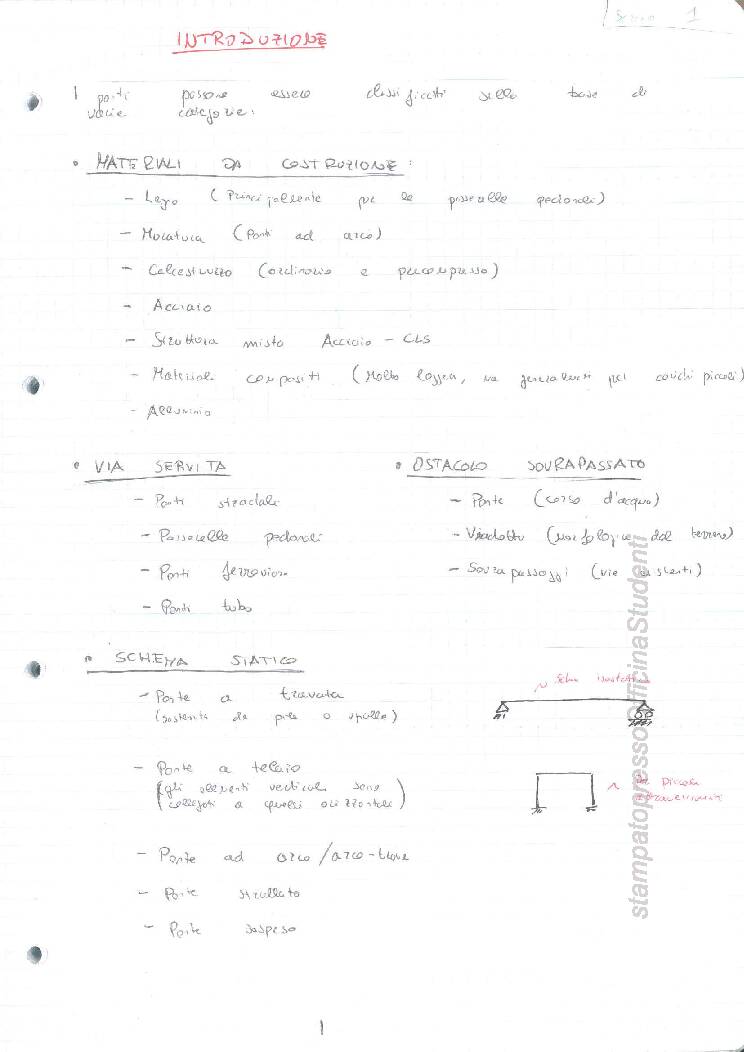 1
INTRODUZIONE
I ponti possono essere classificati sulla base di
varie categorie:
• MATERIALI DA COSTRUZIONE:
- Legno (Principalmente per le passerelle pedonali)
- Muratura (Ponti ad arco)
- Calcestruzzo (ordinario e precompresso)
- Acciaio
- Struttura mista Acciaio - CLS
- Materiali compositi (Molto leggeri, ma generalmente per carichi piccoli)
- Alluminio
• VIA SERVITA
- Ponti stradali
- Passerelle pedonali
- Ponti ferroviari
- Ponti tubo
• OSTACOLO SOVRAPASSATO
- Ponte (corso d'acqua)
- Viadotto (morfologia del terreno)
- Sovrapassaggi (vie esistenti)
• SCHEMA STATICO
- Ponte a travata
(sostenuta da pile o spalle)
- Ponte a telaio
(gli elementi verticali sono
collegati a quelli orizzontali)
- Ponte ad arco/arco-trave
- Ponte strallato
- Ponte sospeso
Piccoli
attraversamenti
stampatopressoOfficinaStudenti
1